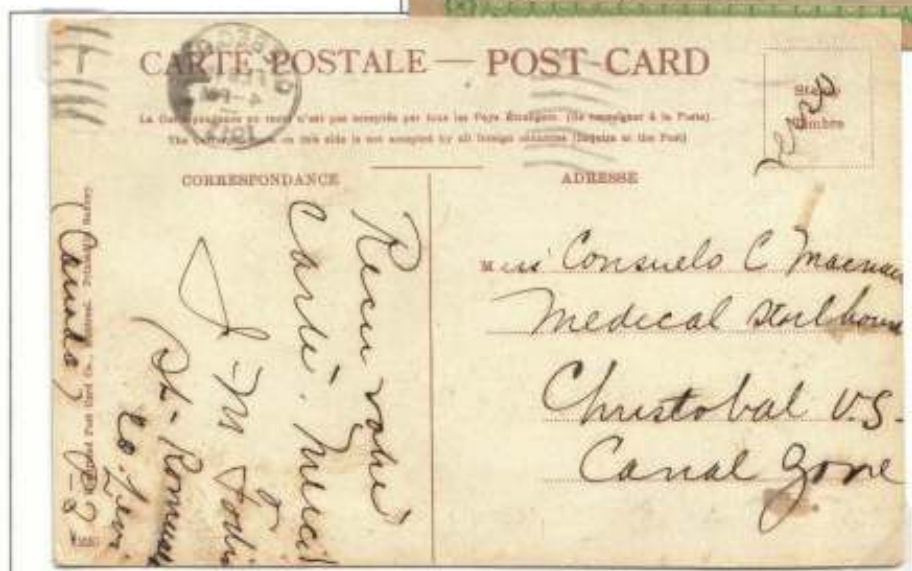 CARTE POSTALE — POST-CARD
La Correspondance au recto n'est pas acceptée par tous les Pays Étrangers. (Se renseigner à la Poste).
The Correspondence on this side is not accepted by all foreign countries (Inquire at the Post)
Timbre
CORRESPONDANCE
ADRESSE
Recu votre
Carte. Merci
J-M
St-Romuald
Co. Levi
(Canada) P-2
Post Card Co., Montreal.
Miss Consuelo C
Medical Storehouse
Christobal U.S.
Canal Zone